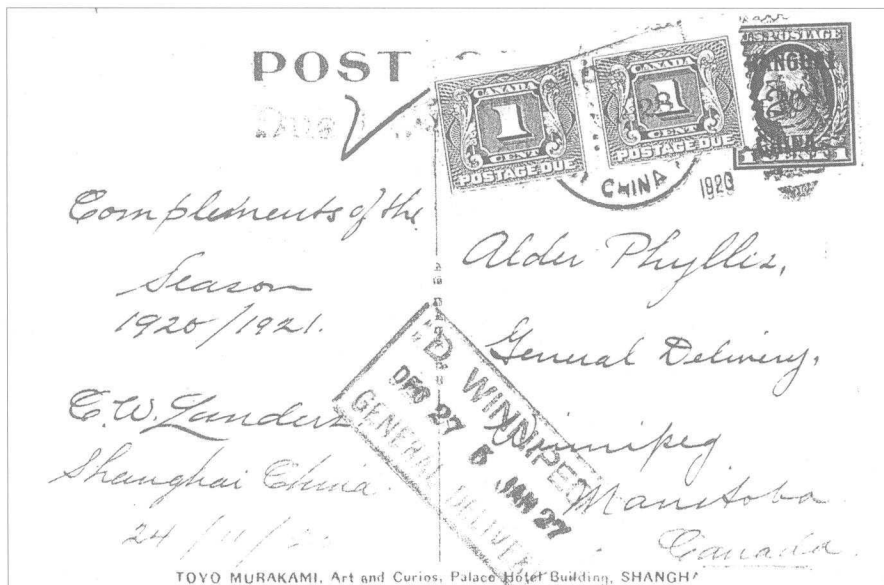 POST
Due
CANADA
1
CENT
POSTAGE DUE
CANADA
1
CENT
POSTAGE DUE
U.S. POSTAGE
SHANGHAI
CHINA
1 CENT 1
28
CHINA
1920
Compliments of the
Season
1920/1921.
C. W. Landers
Shanghai China
24/11/20
Alder Phyllis,
General Delivery,
Winnipeg
Manitoba
Canada.
D. WINNIPEG
DEC 27 5 JAN 27
GENERAL DELIVERY
TOYO MURAKAMI, Art and Curios, Palace Hotel Building, SHANGH